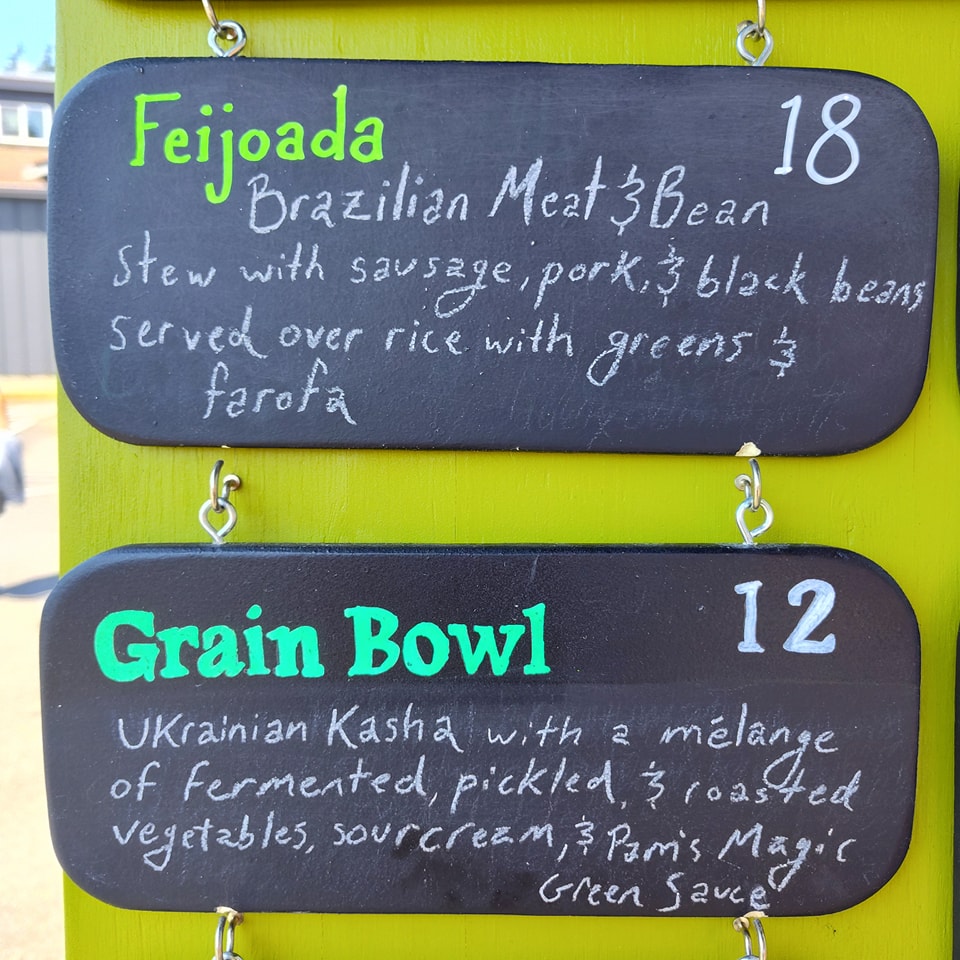 Feijoada 18
Brazilian Meat & Bean
Stew with sausage, pork, & black beans
served over rice with greens &
farofa
Grain Bowl 12
Ukrainian Kasha with a mélange
of fermented, pickled, & roasted
vegetables, sour cream, & Pam's Magic
Green Sauce